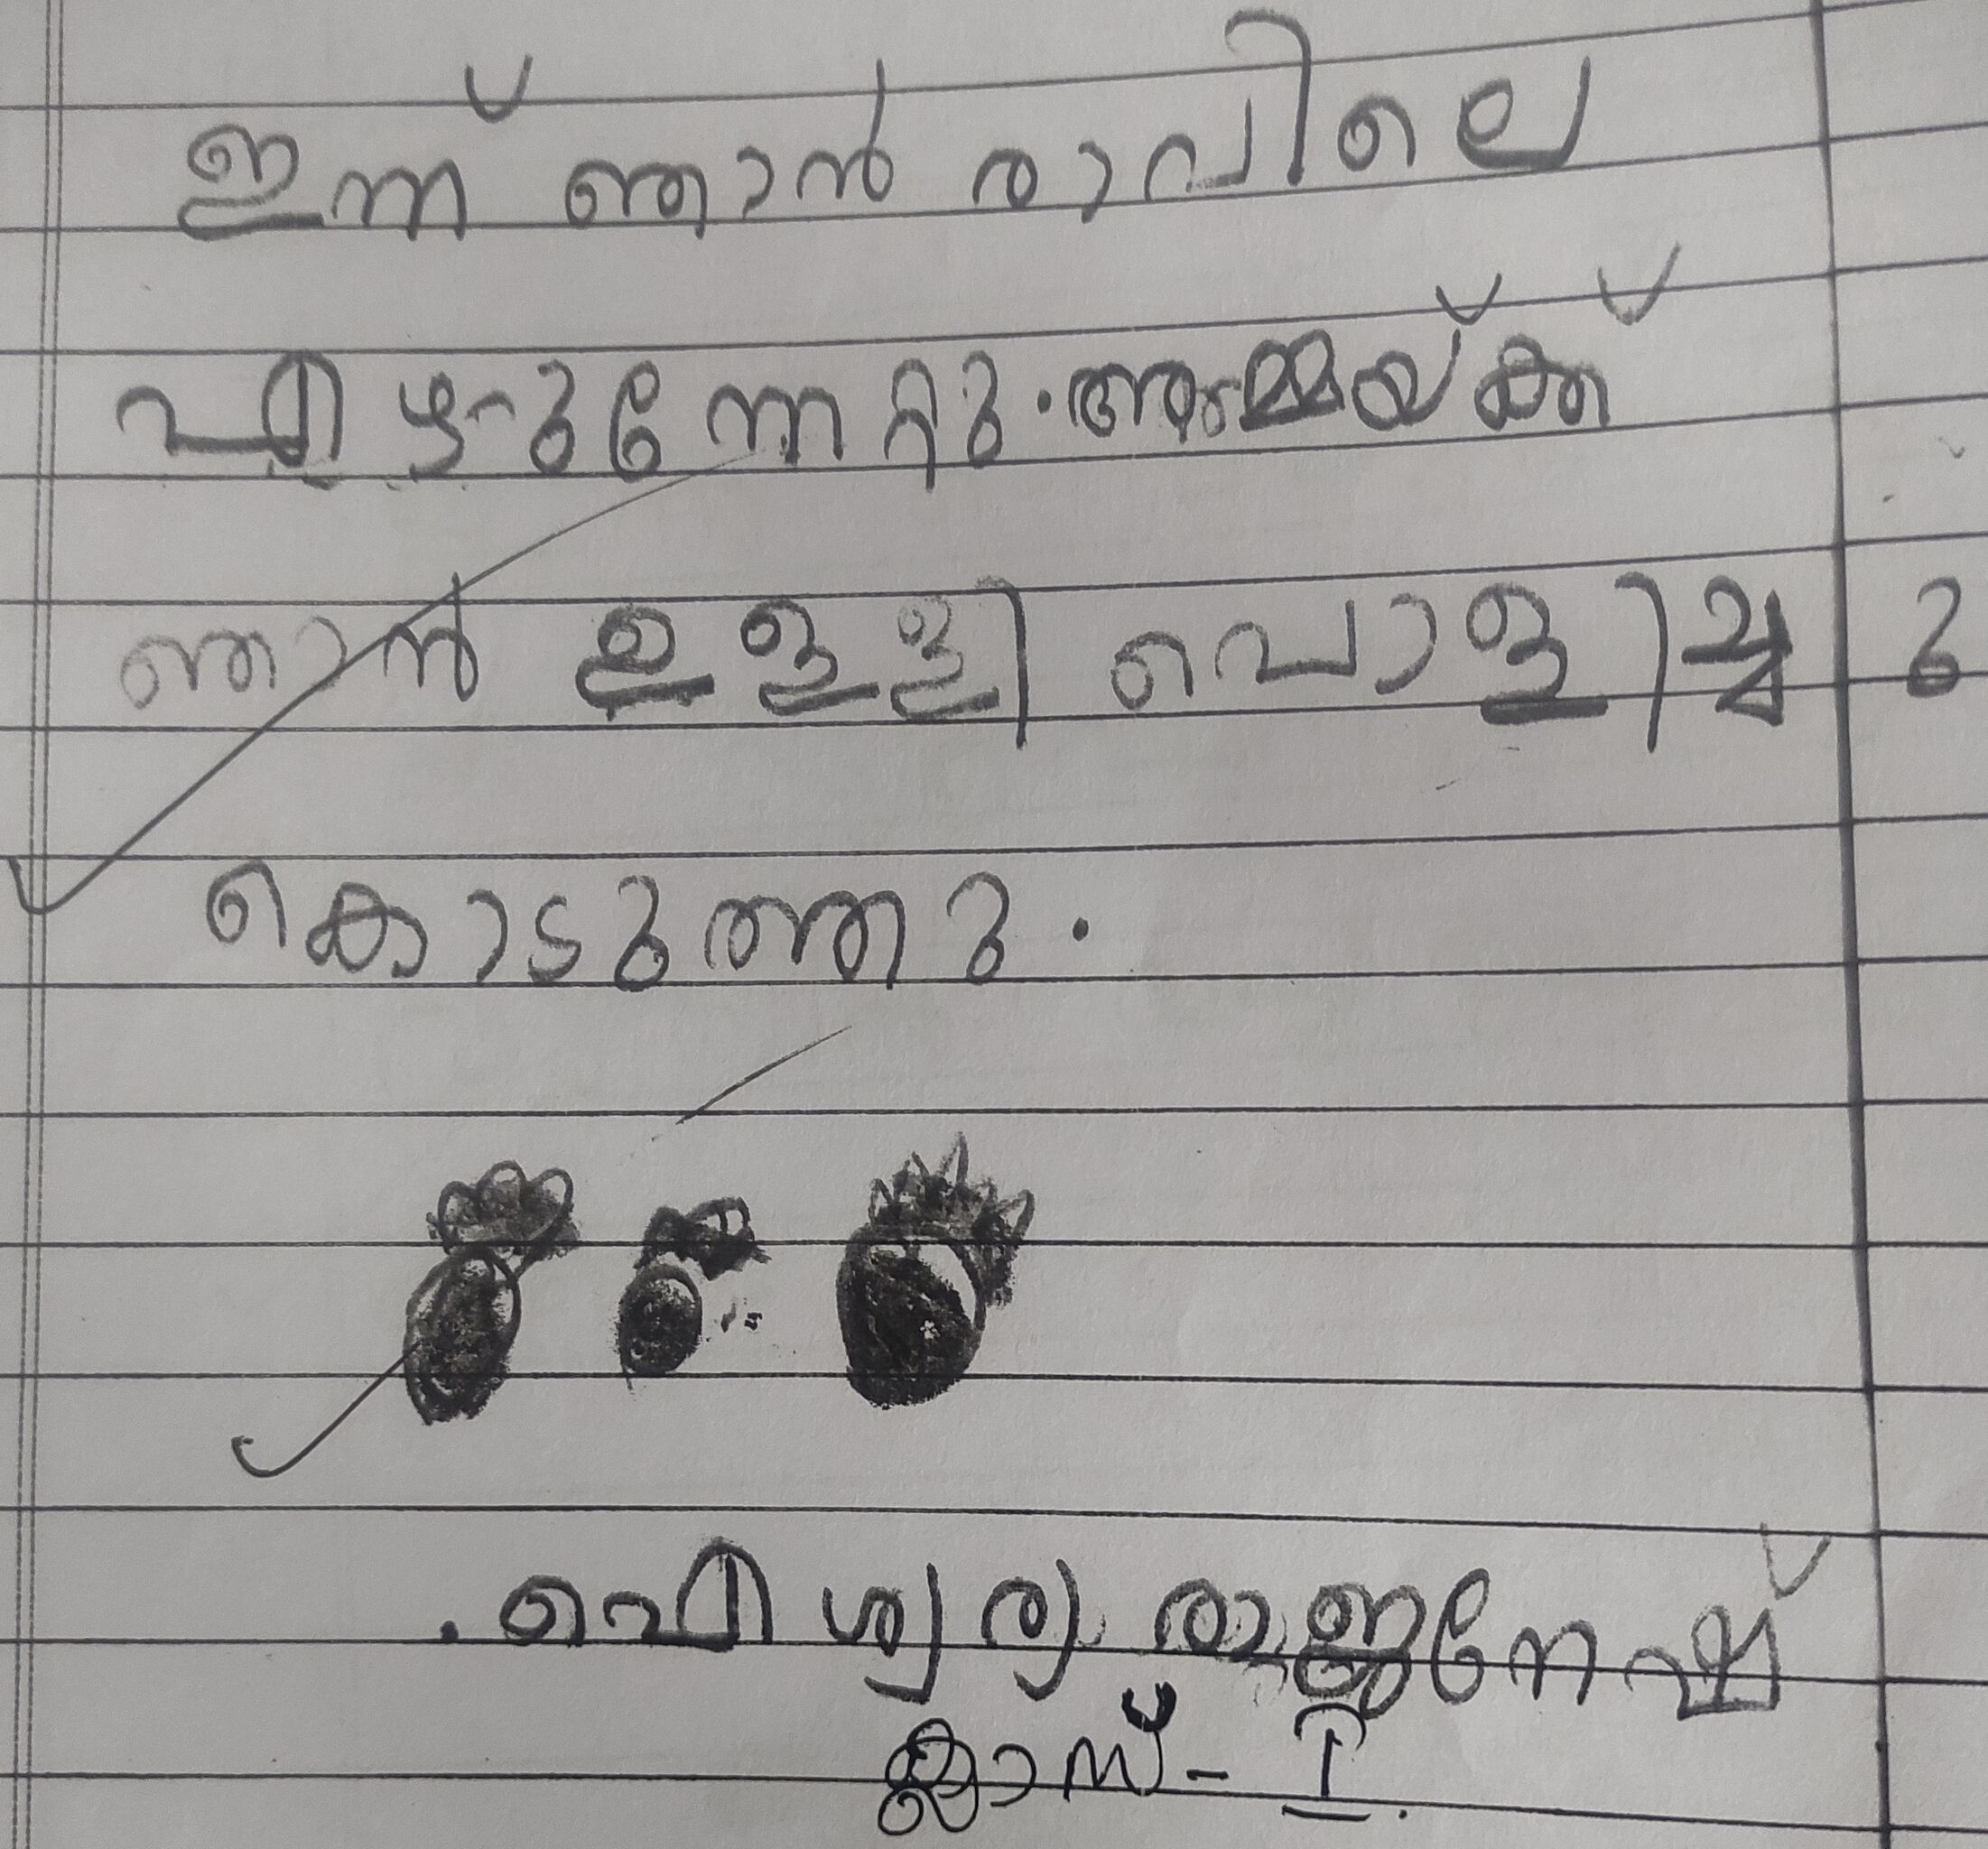 ഇന്ന് ഞാൻ രാവിലെ
എഴുന്നേറ്റു. അമ്മയ്ക്ക്
ഞാൻ ഉള്ളി പൊളിച്ചു
കൊടുത്തു.
ഐശ്വര്യ രാജനേഷ്
ക്ലാസ് - I.